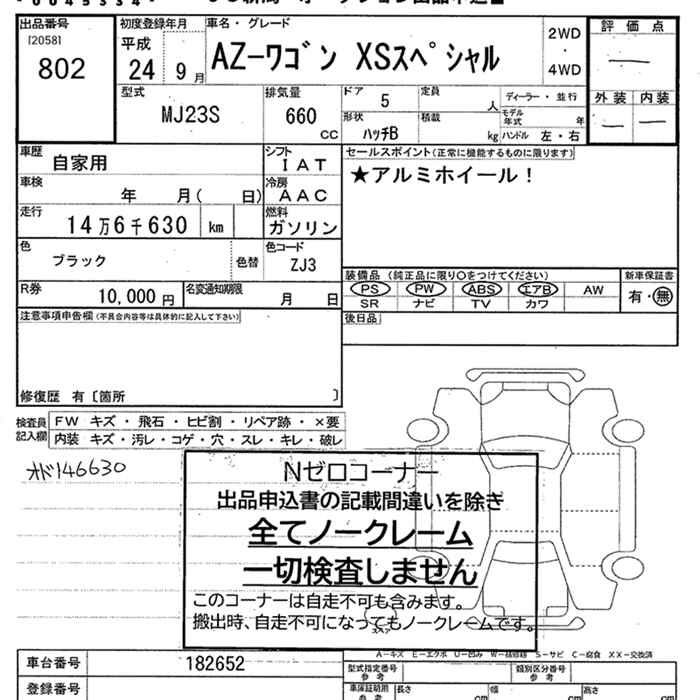 出品番号
[2058]
802
初度登録年月
平成
24 9 月
車名・グレード
AZ-ワゴン XSスペシャル
2WD
・
4WD
評価点
—
外装 内装
— —
型式
MJ23S
排気量
660
cc
ドア 5
定員
人
形状
ハッチB
積載
kg
ディーラー・並行
モデル年式
年
ハンドル 左・右
車歴
自家用
シフト
IAT
車検
年 月( 日)
冷房
AAC
走行
14万6千630 km
燃料
ガソリン
色
ブラック
色替
色コード
ZJ3
R券
10,000円
名変通知期限
月 日
セールスポイント(正常に機能するものに限ります)
★アルミホイール!
装備品 (純正品に限り○をつけてください)
PS PW ABS エアB AW
SR ナビ TV カワ
新車保証書
有・無
後日品
注意事項申告欄(不具合内容等は具体的に記入して下さい)
修復歴 有〔箇所 〕
検査員記入欄
FW キズ・飛石・ヒビ割・リペア跡・×要
内装 キズ・汚レ・コゲ・穴・スレ・キレ・破レ
オド146630
Nゼロコーナー
出品申込書の記載間違いを除き
全てノークレーム
一切検査しません
このコーナーは自走不可も含みます。
搬出時、自走不可になってもノークレームです。
スペア
A-キズ E-エクボ U-凹み W-補修跡 S-サビ C-腐食 XX-交換済
車台番号
182652
登録番号
型式指定番号
参考
類別区分番号
参考
車庫証明用
参考
長さ
cm
幅
cm
高さ
cm